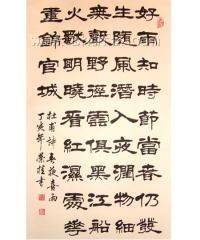 好雨知時節當春仍發
生隨風潛入夜潤物細
無聲野徑雲俱黑江船
火獨明曉看紅濕處花
重錦官城
杜甫詩春夜喜雨
丁亥年榮桂書